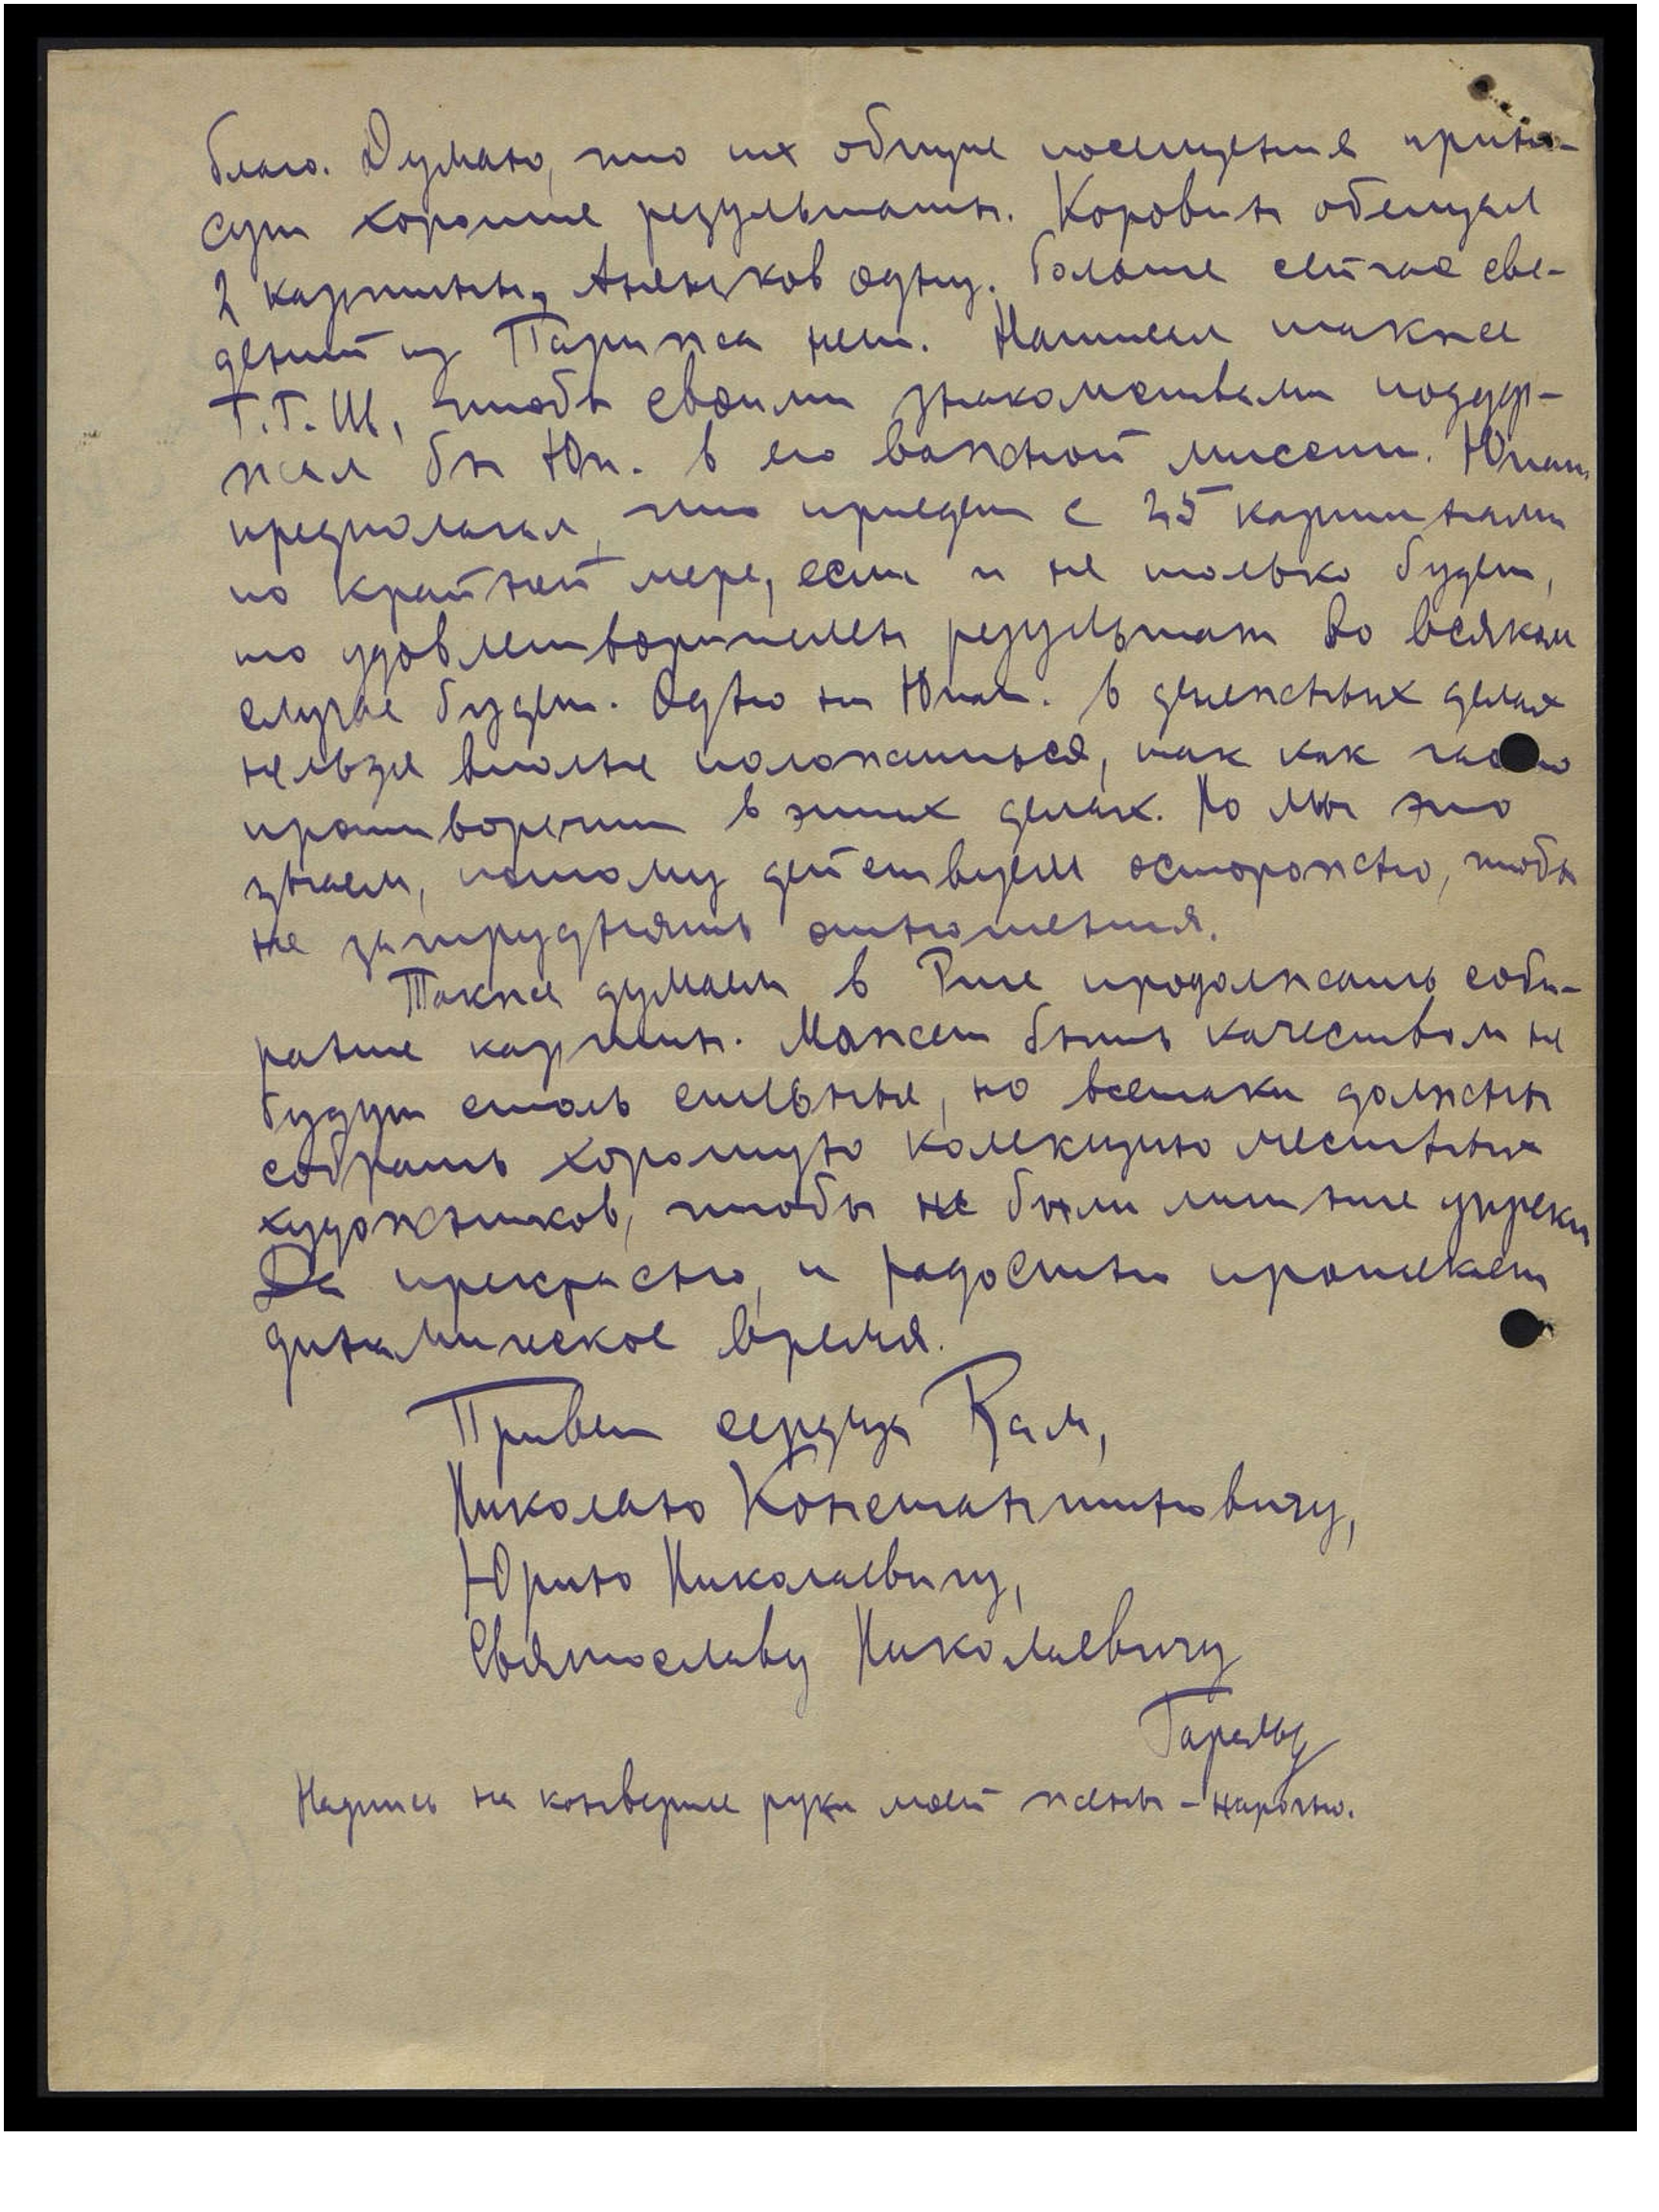 благо. Думаю, что их общие посещения прине-
сут хорошие результаты. Коровин обещал
2 картины, Аненков одну. Больше сейчас све-
дений из Парижа нет. Написал также
Г.Г.Ш., чтобы своими знакомствами поддер-
жал бы Юп. в его важной миссии. Юпат.
предполагал, что приедет с 25 картинами
по крайней мере, если и не только будет,
то удовлетворителен результат во всяком
случае будет. Одно на Юпат. в денежных делах
нельзя вполне положиться, так как часто
противоречит в этих делах. Но мы это
знаем, потому действуем осторожно, чтобы
не затруднять отношения.
Также думаем в Риге продолжать соби-
рание картин. Может быть качеством не
будут столь сильные, но всетаки должны
собрать хорошую колекцию местных
художников, чтобы не были лишние упреки
Да прекрасно, и радостно протекает
динамическое время.
Привет сердца Вам,
Николаю Константиновичу,
Юрию Николаевичу,
Святославу Николаевичу
Гаральд
Надпись на конверте руки моей жены - нарочно.